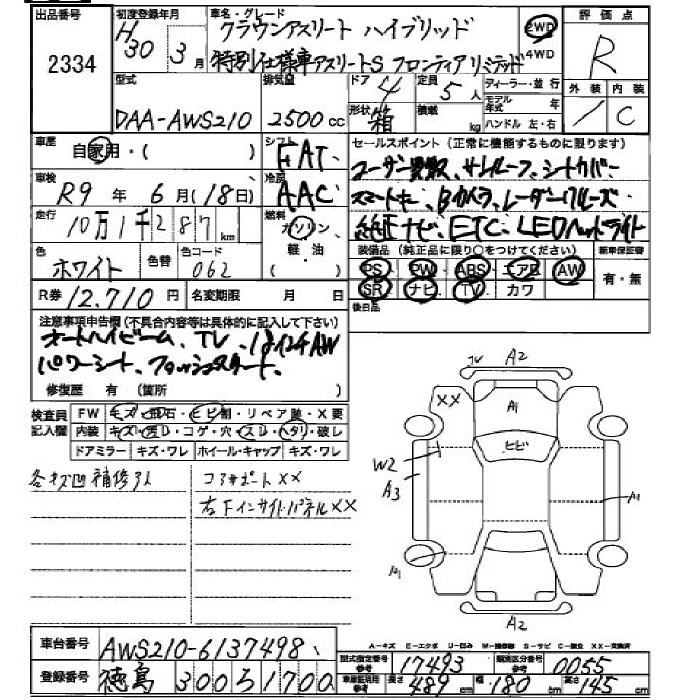 出品番号
2334
初度登録年月
H30 3月
車名・グレード
クラウンアスリート ハイブリッド
特別仕様車アスリートS フロンティアリミテッド
2WD
4WD
評価点
R
外装 内装
/ C
型式
DAA-AWS210
排気量
2500cc
ドア 4
定員 5人
形状 箱
積載 kg
ディーラー・並行
モデル年式 年
ハンドル 左・右
車歴
自家用・( )
シフト
FAT
車検
R9年6月(18日)
冷房
AAC
セールスポイント(正常に機能するものに限ります)
ユーザー買取、サンルーフ、シートカバー
スマートキー、Bカメラ、レーダークルーズ
純正ナビ、ETC、LEDヘッドライト
走行
10万1千287km
燃料
ガソリン・
軽油
( )
色
ホワイト
色替
色コード
062
装備品(純正品に限り○をつけてください)
PS PW ABS エアB AW
SR ナビ TV カワ
新車保証書
有・無
R券 12,710円
名変期限 月 日
後日品
注意事項申告欄(不具合内容等は具体的に記入して下さい)
オートハイビーム、TV、18インチAW
パワーシート、プッシュスタート、
修復歴 有 (箇所 )
検査員記入欄
FW キズ・飛石・ヒビ割・リペア跡・X要
内装 キズ・汚レ・コゲ・穴・スレ・ヘタリ・破レ
ドアミラー キズ・ワレ ホイール・キャップ キズ・ワレ
各キズ凹補修多
コアサポートXX
右Fインサイドパネル XX
A2
XX
A1
ヒビ
W2
A3
A1
A1
A2
A-キズ E-エクボ U-凹み W-補修跡 S-サビ C-腐食 XX-交換済
車台番号
AWS210-6137498
登録番号
徳島 300 ろ 1700
型式指定番号 参考
17493
類別区分番号 参考
0055
車庫証明用 参考
長さ 489cm
幅 180cm
高さ 145cm